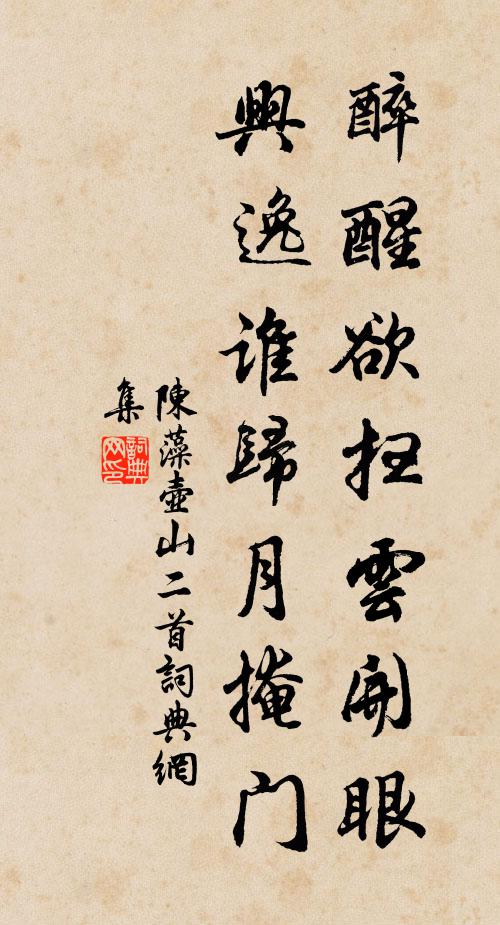 醉醒欲扫雲開眼
興逸谁歸月掩门
陳藻壺山二首詞典網
集
詞典
网印